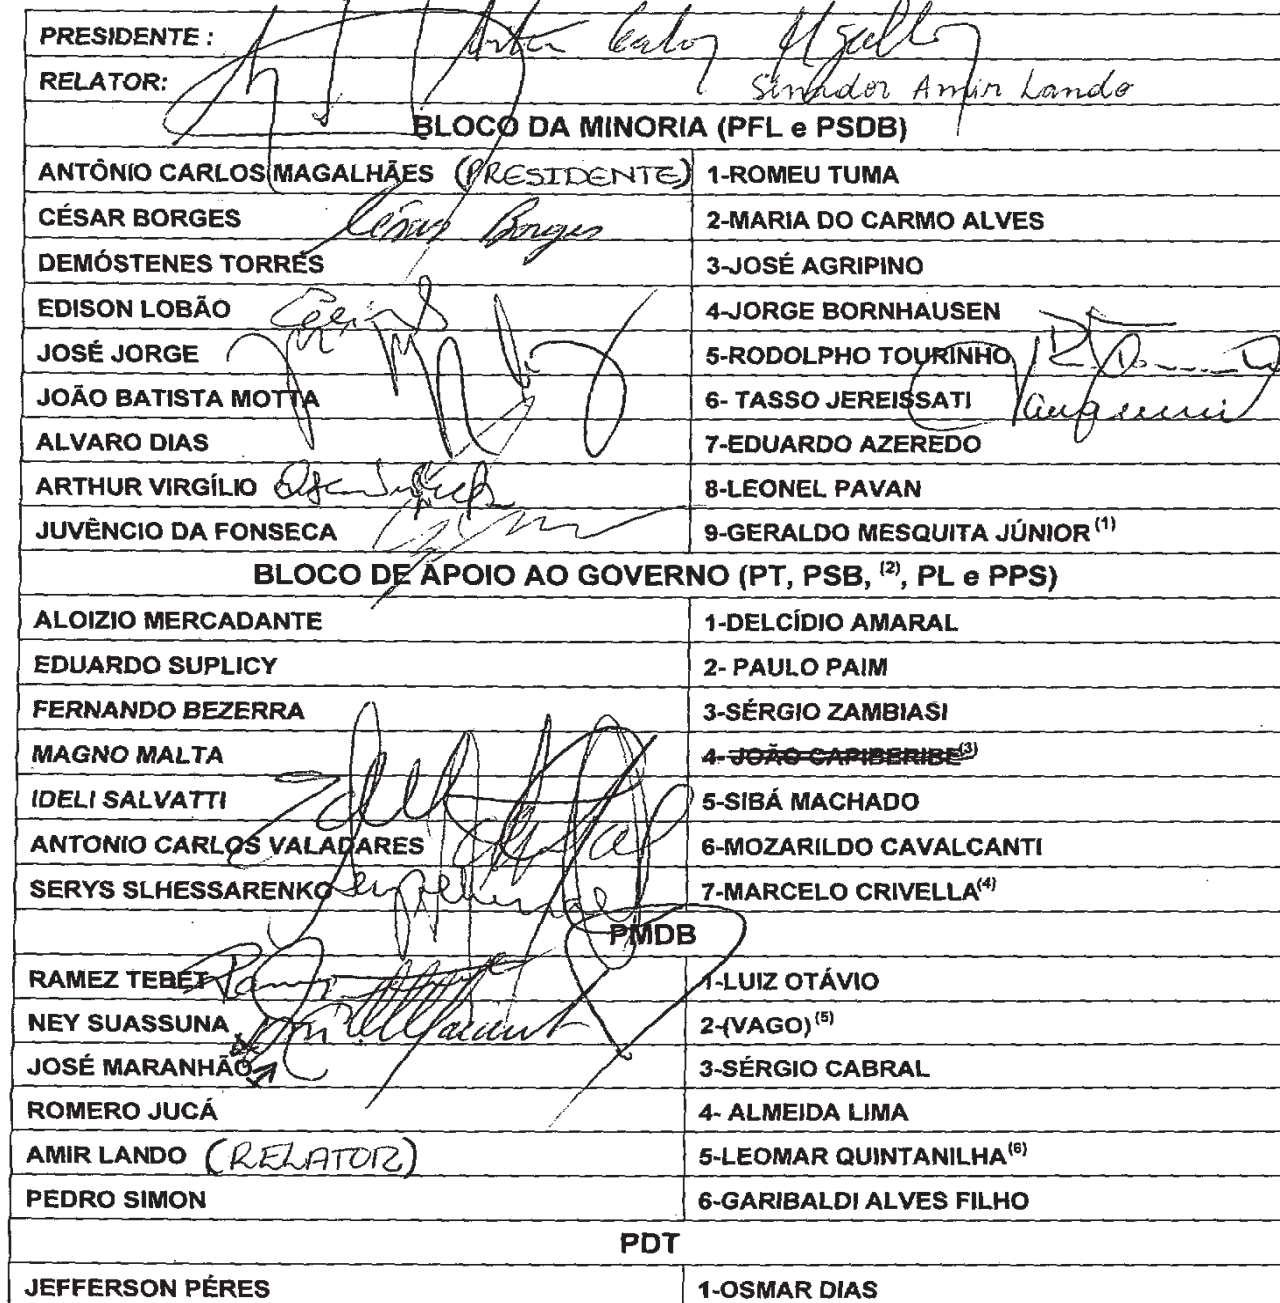 PRESIDENTE :
RELATOR: Senador Amir Lando
BLOCO DA MINORIA (PFL e PSDB)
ANTÔNIO CARLOS MAGALHÃES (PRESIDENTE) 1-ROMEU TUMA
CÉSAR BORGES César Borges 2-MARIA DO CARMO ALVES
DEMÓSTENES TORRES 3-JOSÉ AGRIPINO
EDISON LOBÃO 4-JORGE BORNHAUSEN
JOSÉ JORGE 5-RODOLPHO TOURINHO
JOÃO BATISTA MOTTA 6- TASSO JEREISSATI
ALVARO DIAS 7-EDUARDO AZEREDO
ARTHUR VIRGÍLIO 8-LEONEL PAVAN
JUVÊNCIO DA FONSECA 9-GERALDO MESQUITA JÚNIOR (1)
BLOCO DE APOIO AO GOVERNO (PT, PSB, (2), PL e PPS)
ALOIZIO MERCADANTE 1-DELCÍDIO AMARAL
EDUARDO SUPLICY 2- PAULO PAIM
FERNANDO BEZERRA 3-SÉRGIO ZAMBIASI
MAGNO MALTA 4- JOÃO CAPIBERIBE(3)
IDELI SALVATTI 5-SIBÁ MACHADO
ANTONIO CARLOS VALADARES 6-MOZARILDO CAVALCANTI
SERYS SLHESSARENKO 7-MARCELO CRIVELLA(4)
PMDB
RAMEZ TEBET 1-LUIZ OTÁVIO
NEY SUASSUNA 2-(VAGO) (5)
JOSÉ MARANHÃO 3-SÉRGIO CABRAL
ROMERO JUCÁ 4- ALMEIDA LIMA
AMIR LANDO (RELATOR) 5-LEOMAR QUINTANILHA(6)
PEDRO SIMON 6-GARIBALDI ALVES FILHO
PDT
JEFFERSON PÉRES 1-OSMAR DIAS